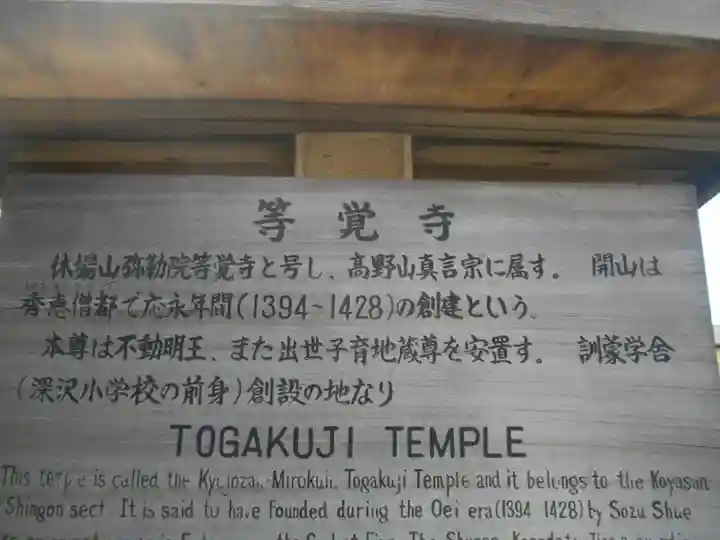 等覚寺
休場山弥勒院等覚寺と号し、高野山真言宗に属す。 開山は
秀恵僧都で応永年間(1394~1428)の創建という。
本尊は不動明王、また出世子育地蔵尊を安置す。 訓蒙学舎
(深沢小学校の前身)創設の地なり
TOGAKUJI TEMPLE
This is called the Togakuji Temple and it belongs to the Koyasan
Shingon sect. It is said to have Founded during the Oei era(1394 1428) by Sozu Shue